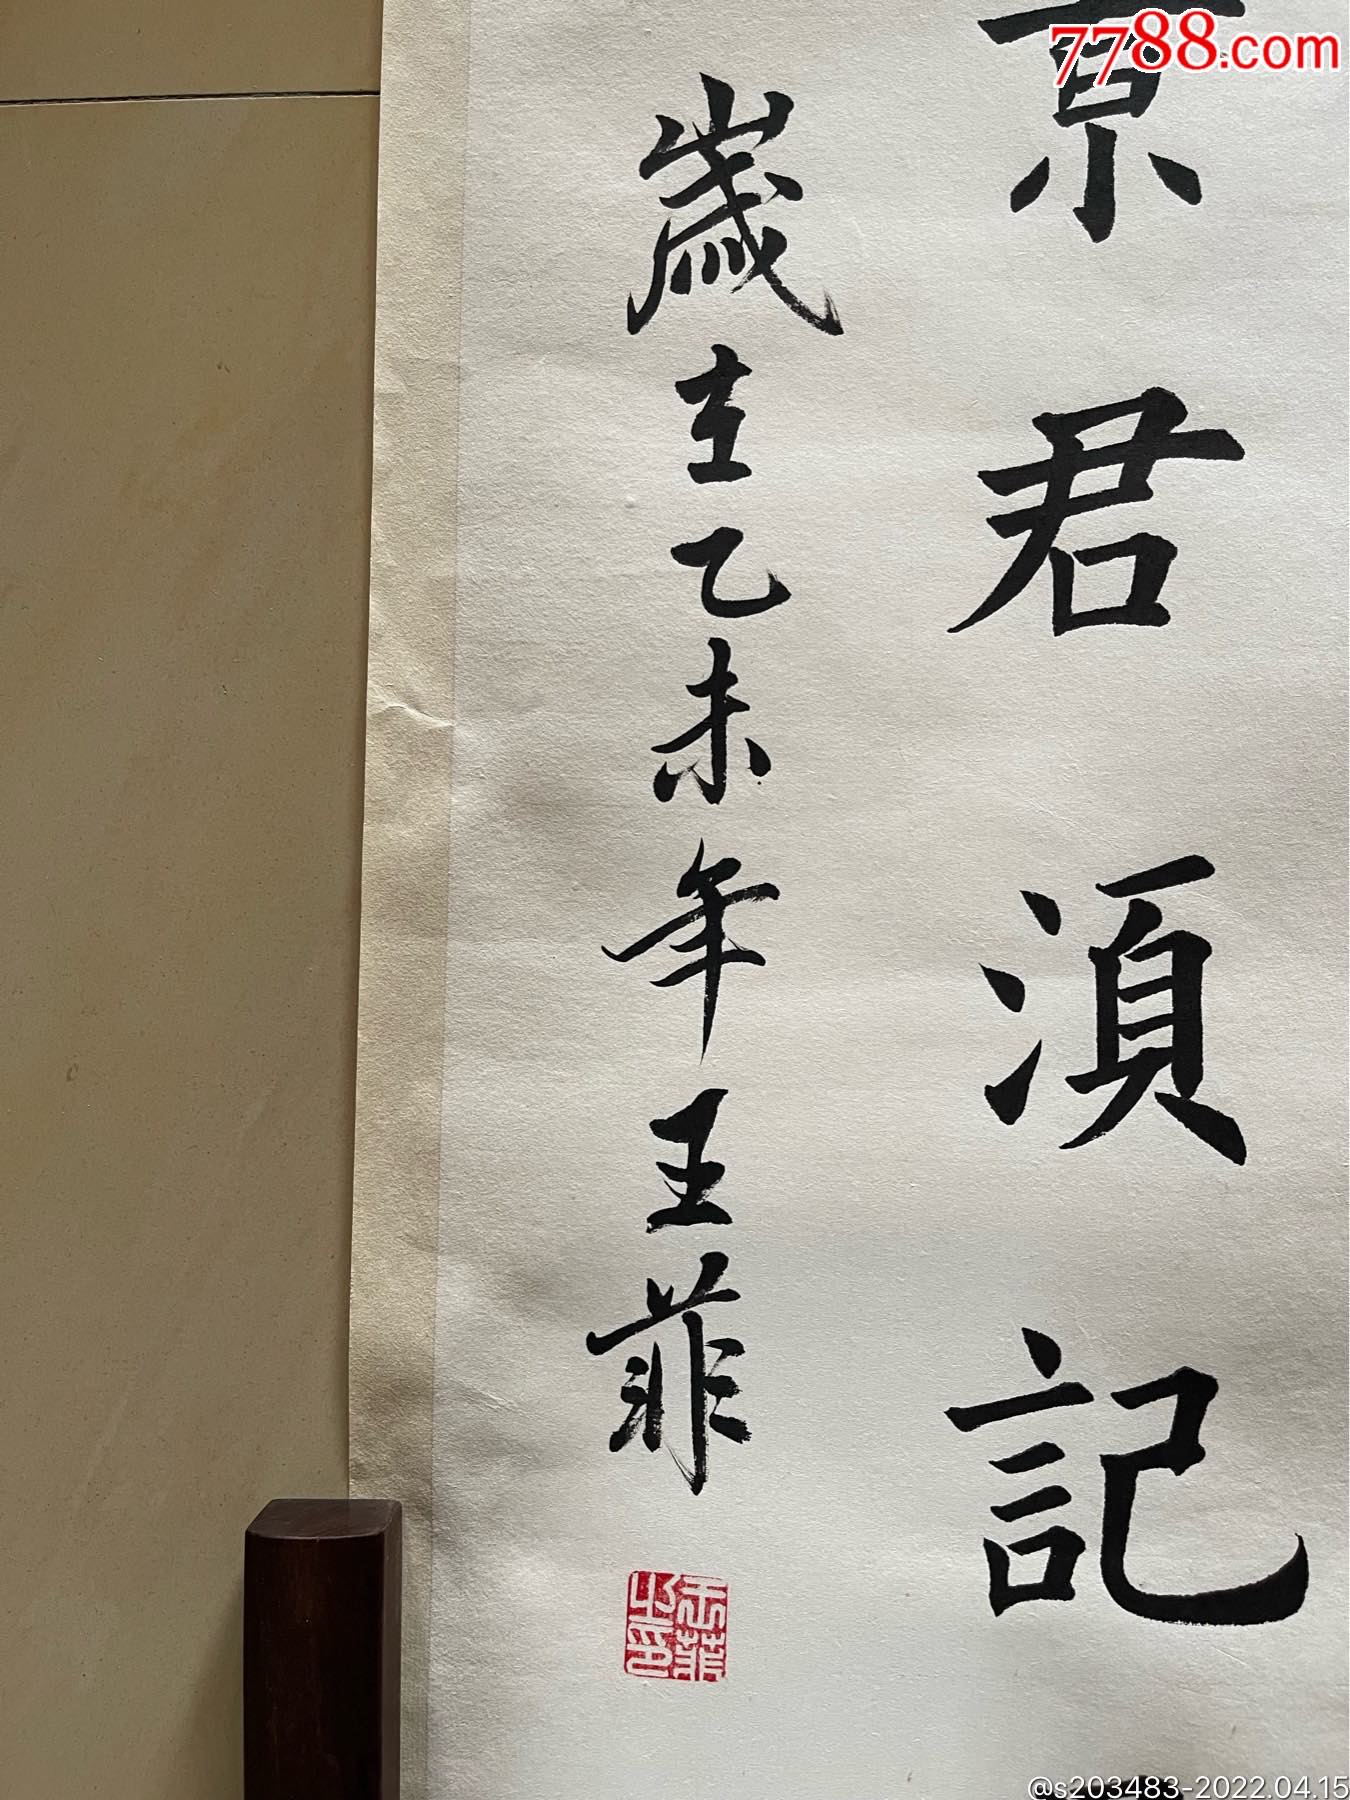 7788.com
景君須記
歲在乙未年王菲
王菲之印
@s203483-2022.04.15